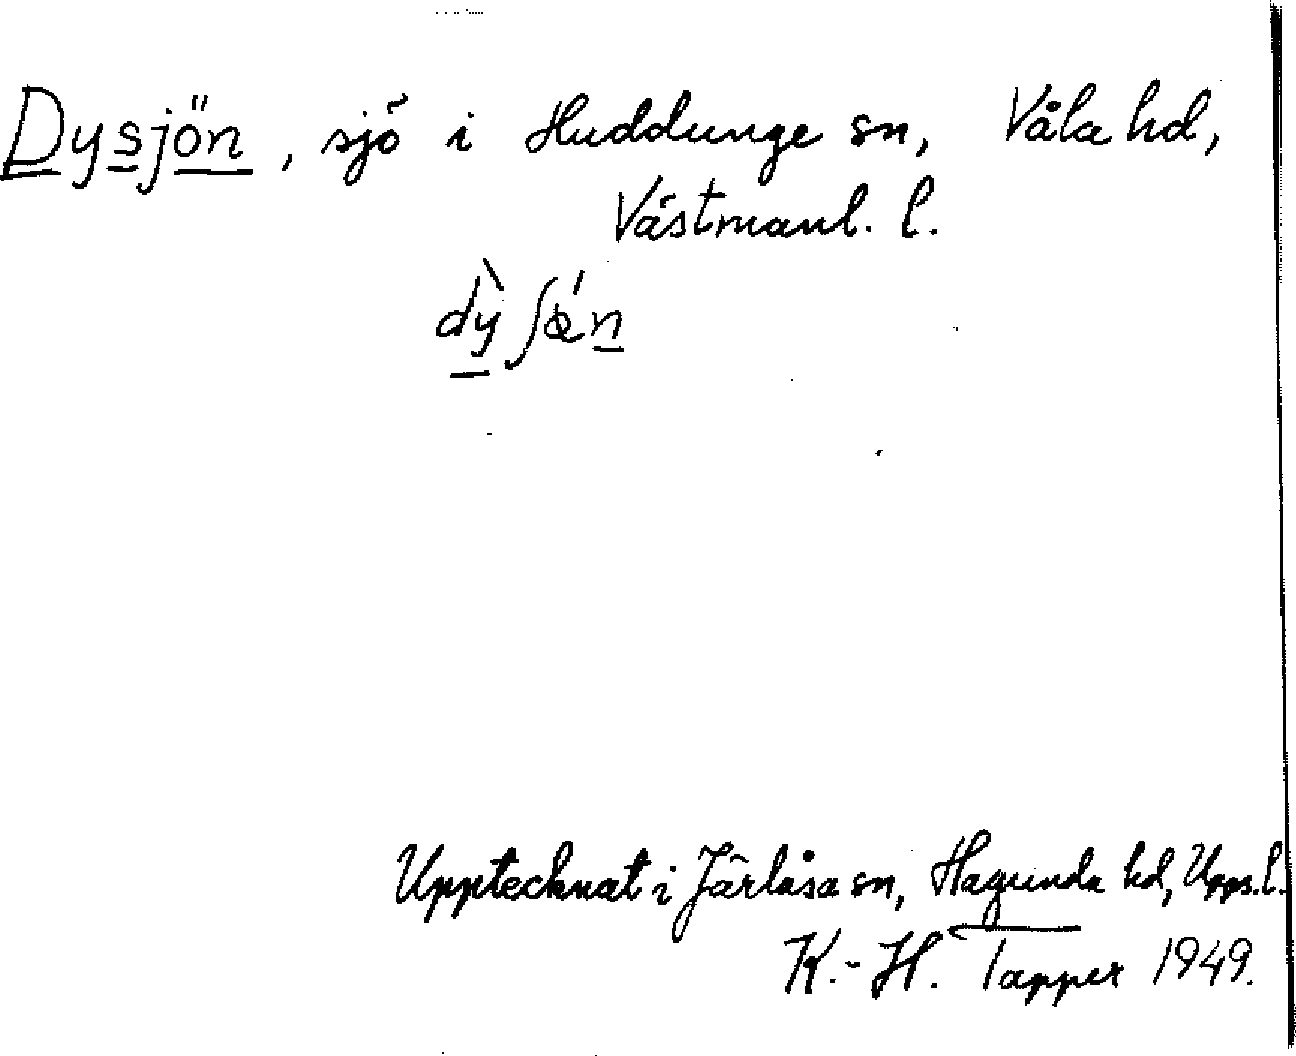 Dysjön, sjö i Huddunge sn, Våla hd,
Västmanl. l.
dỳʃǿn
Upptecknat i Järlåsa sn, Hagunda hd, Upps.l.
K.-H. Tapper 1949.